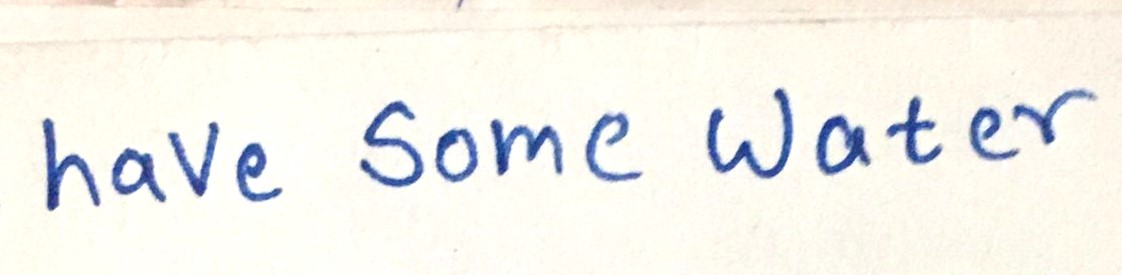 have Some Water